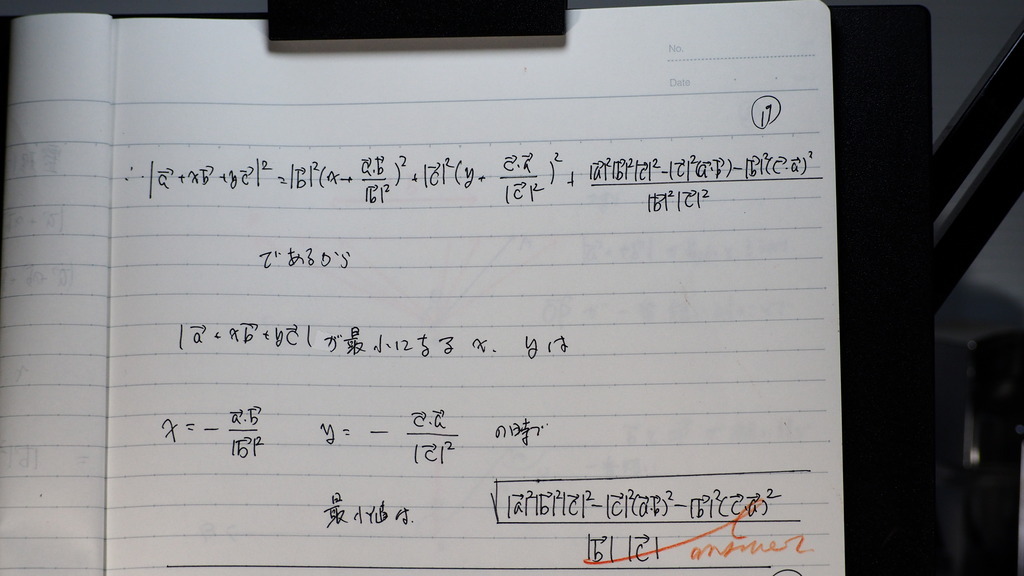 No.
Date
⑰
∴ |a⃗+xb⃗+yc⃗|² = |b⃗|²(x+ a⃗·b⃗/|b⃗|²)² + |c⃗|²(y+ c⃗·a⃗/|c⃗|²)² + |a⃗|²|b⃗|²|c⃗|²-|c⃗|²(a⃗·b⃗)-|b⃗|²(c⃗·a⃗)²/|b⃗|²|c⃗|²
であるから
|a⃗+xb⃗+yc⃗| が最小になる x. yは
x = - a⃗·b⃗/|b⃗|² y = - c⃗·a⃗/|c⃗|² の時で
最小値は. √|a⃗|²|b⃗|²|c⃗|²-|c⃗|²(a⃗·b⃗)²-|b⃗|²(c⃗·a⃗)²/|b⃗| |c⃗|
answer